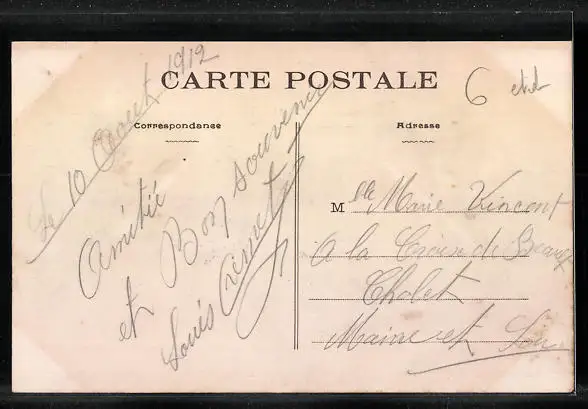 CARTE POSTALE
Correspondance
Adresse
6
Le 10 Aout 1912
Amitié
et Bon souvenir
Louis
Mlle Marie Vincent
A la Croix de
Cholet
Maine et Loire